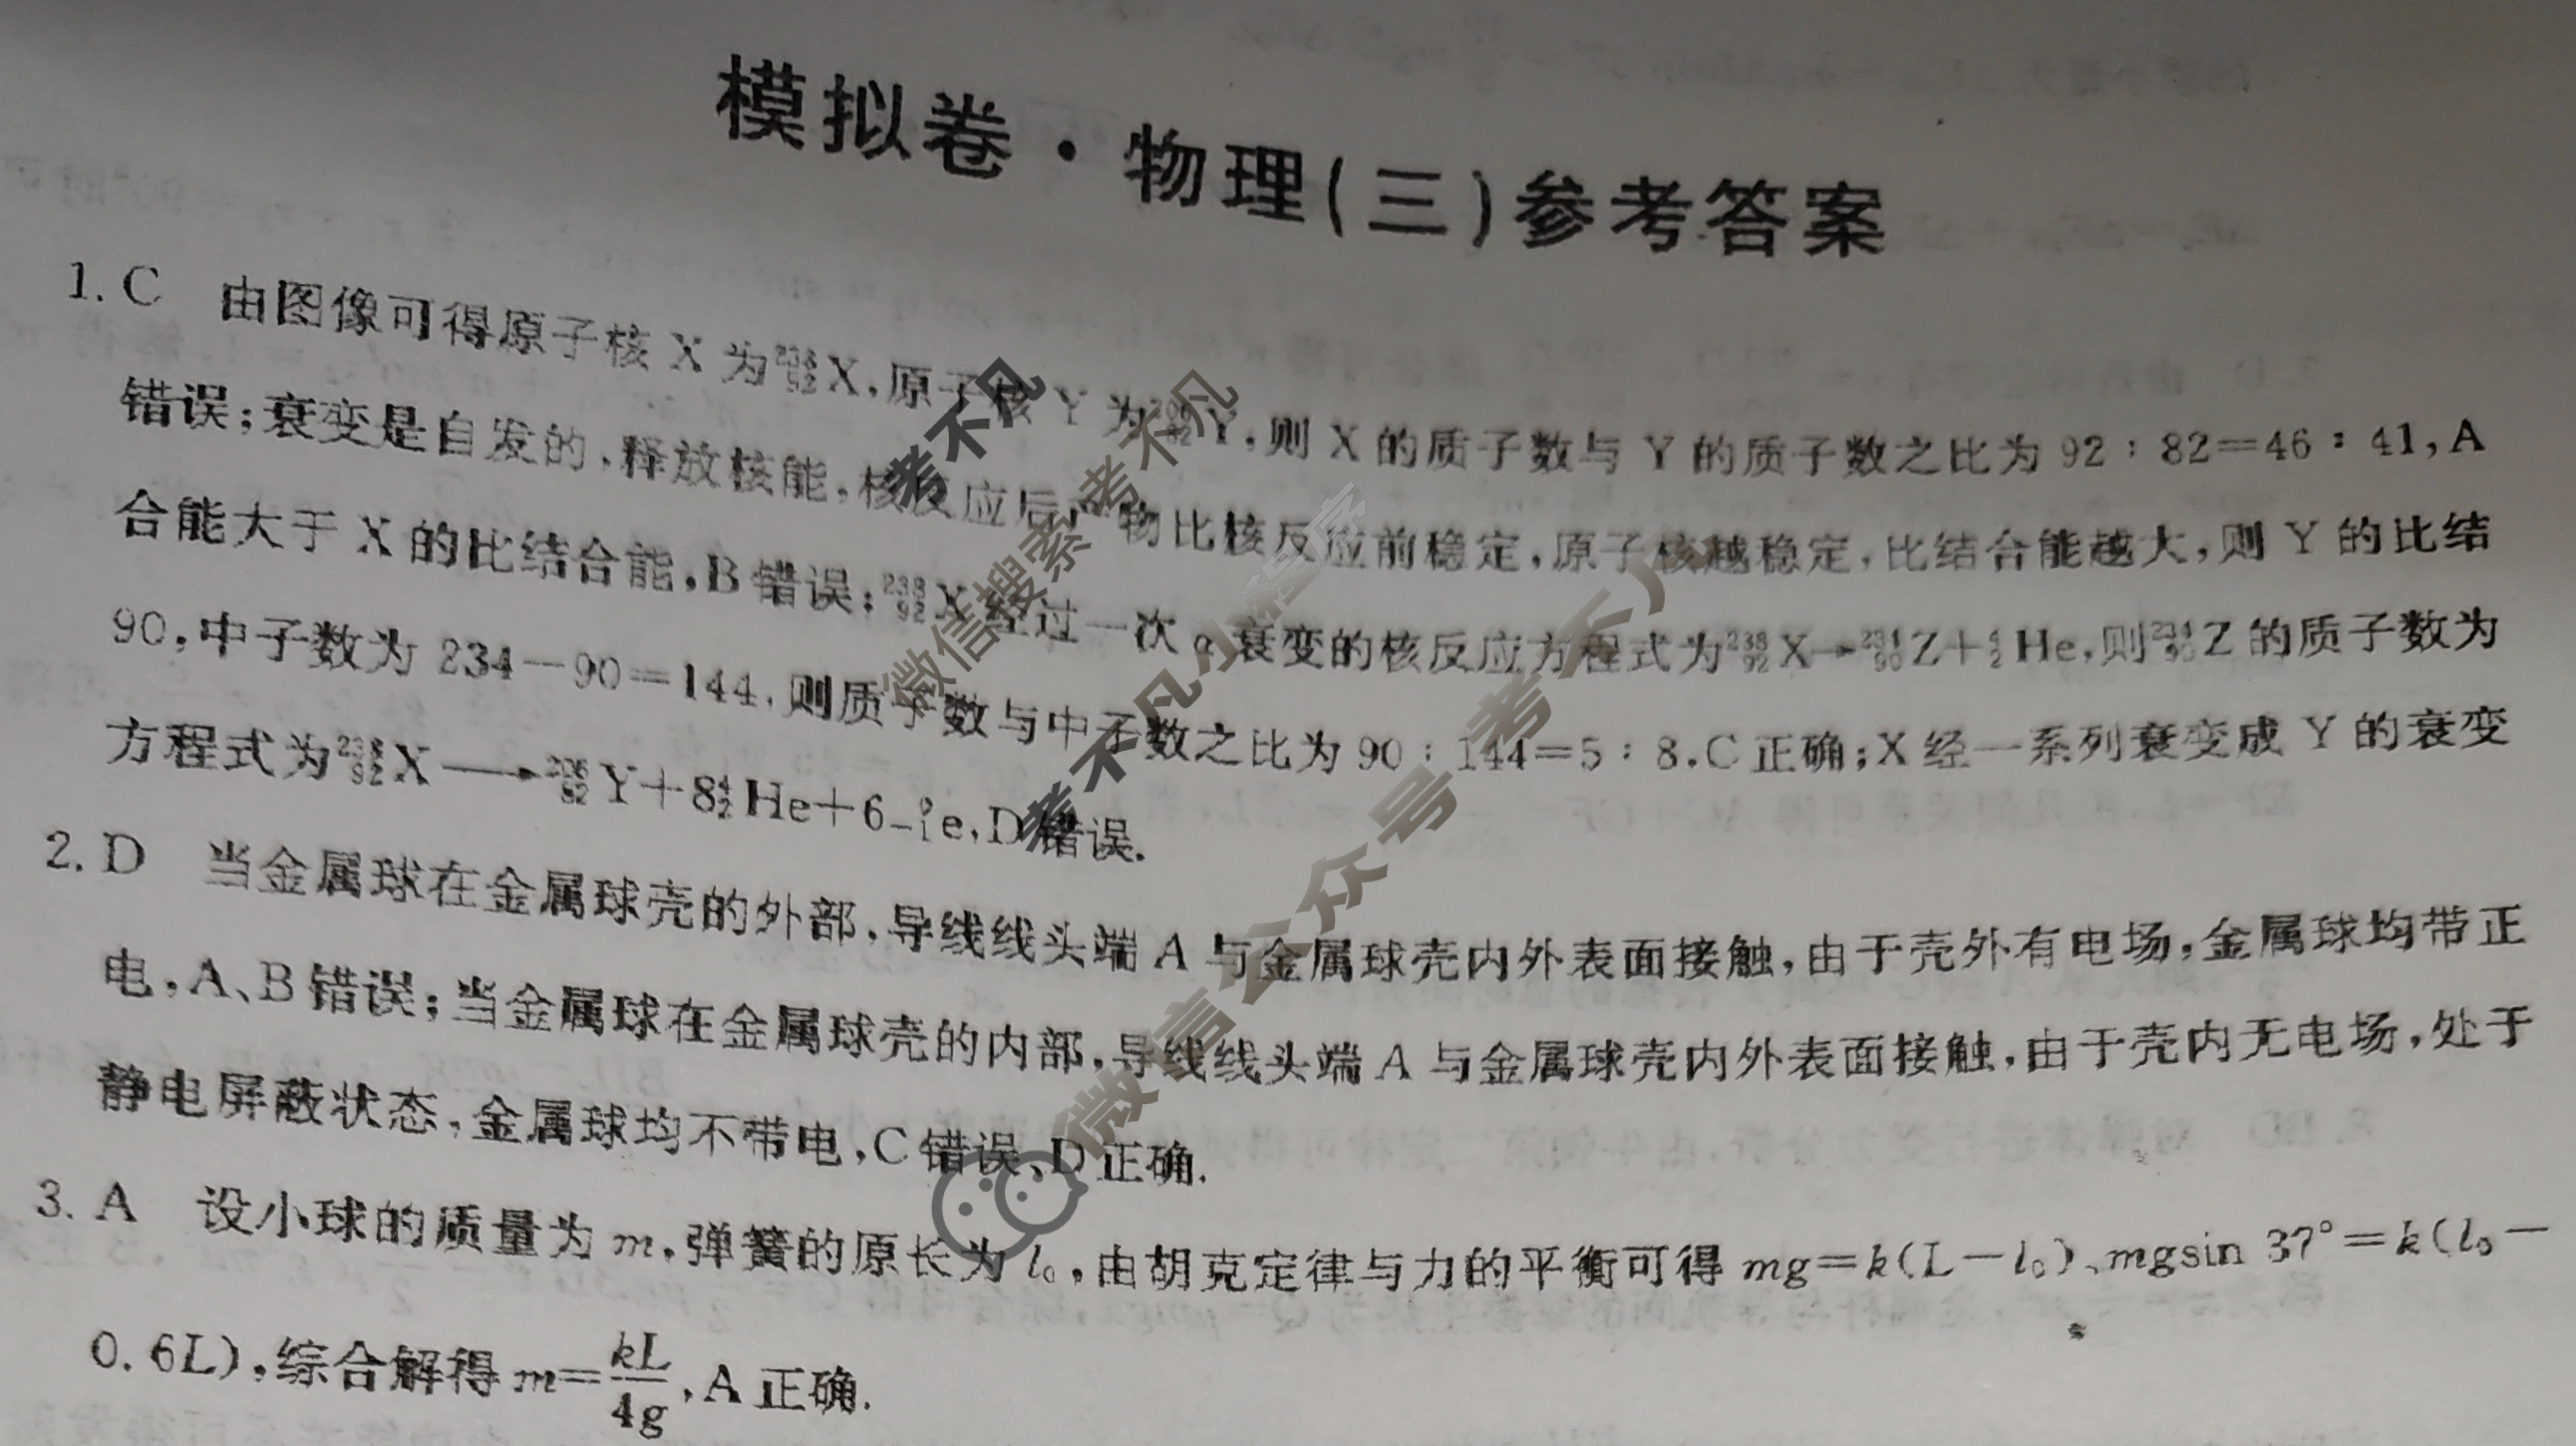 模拟卷·物理(三)参考答案
1. C 由图像可得原子核 X 为²³⁸₉₂X,原子核 Y 为²⁰⁶₈₂Y,则 X 的质子数与 Y 的质子数之比为 92∶82=46∶41,A
错误;衰变是自发的,释放核能,核反应后产物比核反应前稳定,原子核越稳定,比结合能越大,则 Y 的比结
合能大于 X 的比结合能,B 错误;²³⁸₉₂X 经过一次 α 衰变的核反应方程式为²³⁸₉₂X→²³⁴₉₀Z+⁴₂He,则²³⁴₉₀Z 的质子数为
90,中子数为 234-90=144,则质子数与中子数之比为 90∶144=5∶8,C 正确;X 经一系列衰变成 Y 的衰变
方程式为²³⁸₉₂X⟶²⁰⁶₈₂Y+8⁴₂He+6⁰₋₁e,D 错误.
2. D 当金属球在金属球壳的外部,导线线头端 A 与金属球壳内外表面接触,由于壳外有电场,金属球均带正
电,A、B 错误;当金属球在金属球壳的内部,导线线头端 A 与金属球壳内外表面接触,由于壳内无电场,处于
静电屏蔽状态,金属球均不带电,C 错误、D 正确.
3. A 设小球的质量为 m,弹簧的原长为 l₀,由胡克定律与力的平衡可得 mg=k(L-l₀)、mgsin 37°=k(l₀-
0.6L),综合解得 m=kL/4g,A 正确.
考不凡
微信搜索考不凡
考不凡小程序
微信公众号 考不凡